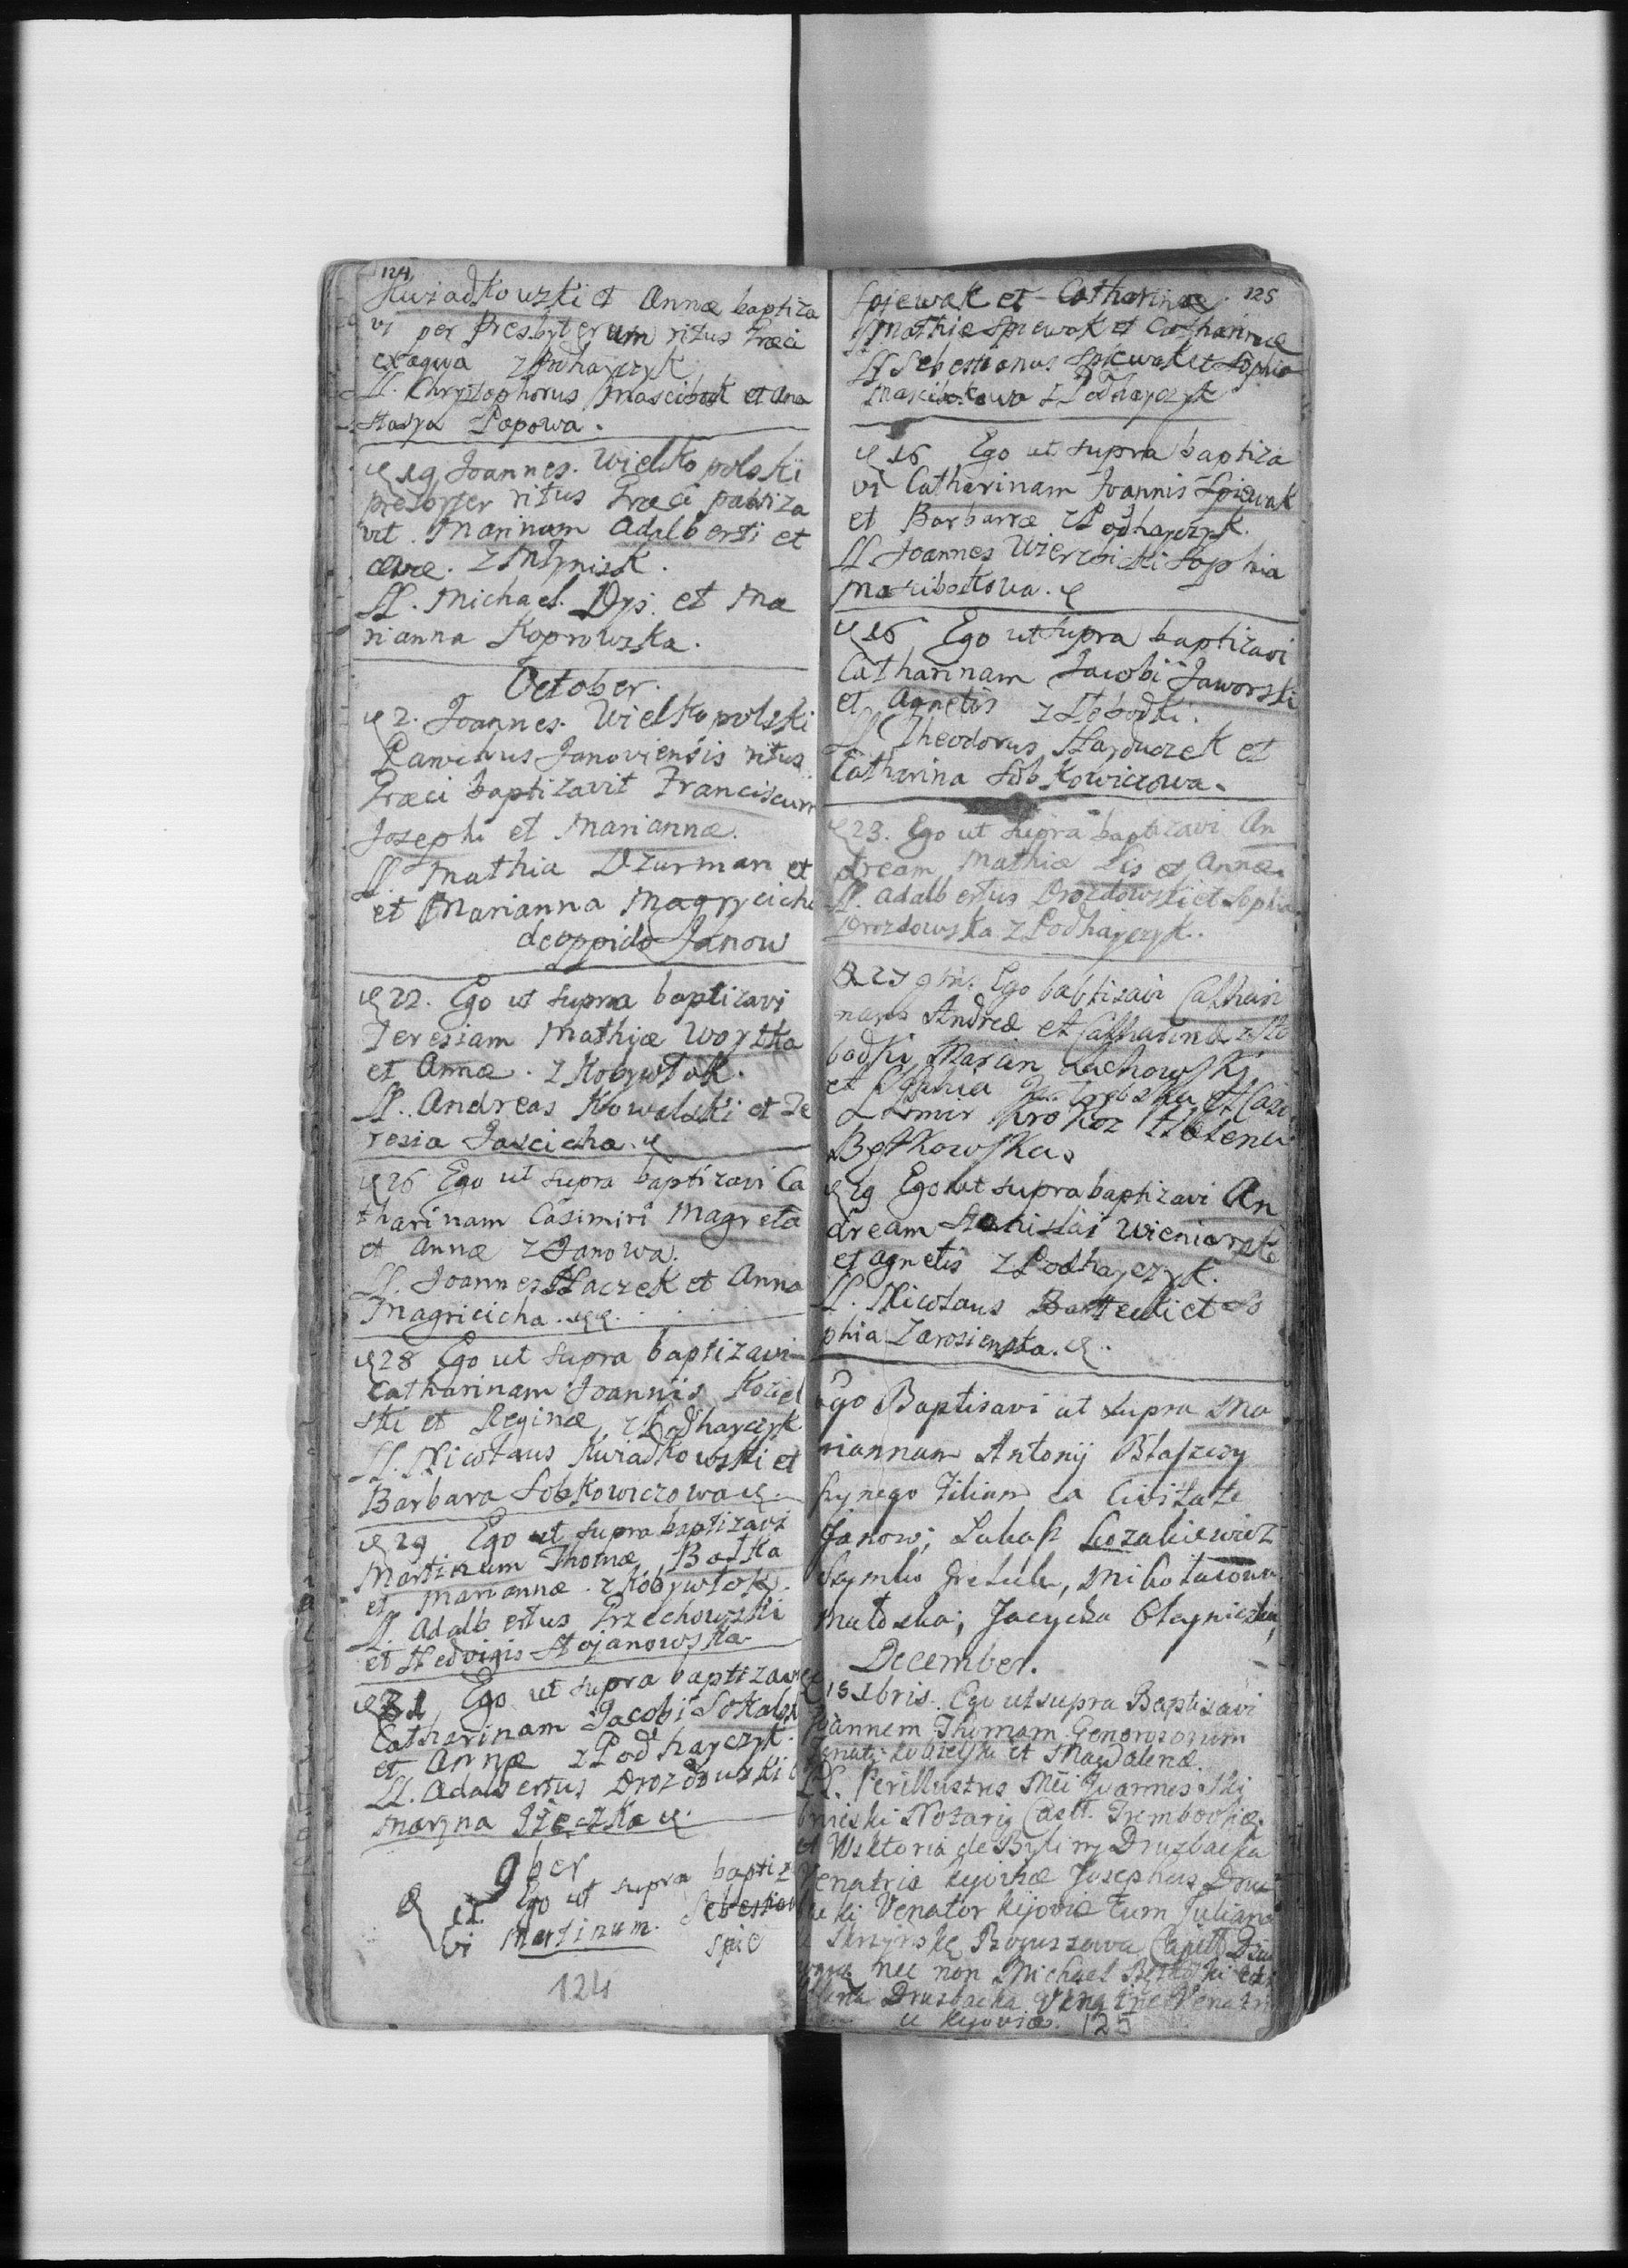 124
Kuriadkowski et Annæ baptiza
vi per Presbyterum ritus Græci
ex aqua z Podhayczyk
LL. Chrystophorus Mascibok et Ana
stasya Popowa.
19 Joannes. Wielko polski
presbyter ritus Græci pabtiza
vit. Marinam Adalberti et
z Młynisk.
LL. Michael. Dys. et Ma
rianna Koprowska.
October.
2. Joannes. Wielko polski
Parochus Janoviensis ritus
Græci baptizavit Franciscum
Josephi et Mariannæ.
LL Mathia Dzurman et
et Marianna Magrycicha
de oppido Janow
22. Ego ut supra baptizavi
Teresiam Mathiæ Woytka
et Annæ. z Kobywłok.
LL. Andreas Kowalski et Te
resia Jascicha.
26 Ego ut supra baptizavi Ca
tharinam Casimiri Magreta
et Annæ z Janowa.
LL. Joannes Haczek et Anna
Magricicha.
28 Ego ut supra baptizavi
Catharinam Joannis Koziel
ski et Reginæ z Podhayczyk
LL. Nicolaus Kuradkowski et
Barbara Sobkowiczowa.
29 Ego ut supra baptizavi
Martinum Thomæ Bałka
et Mariannæ. z Kobywłok.
LL. Adalbertus Przechowski
et Hedvigis Stojanowska
31 Ego ut supra baptizavi
Catharinam Jacobi Sokalski
et Annæ z Podhayczyk.
LL. Adalbertus Drozdowski
Maryna
9ber
11 Ego ut supra baptiza
vi Martinum. Sebestian
Spie
124
Spiewak et Catharinæ. 125
Mathiæ Spiewak et Catharinæ
LL Sebestianus Spiewak et Sophia
Mascibokowa z Podhayczyk
16 Ego ut supra baptiza
vi Catharinam Joannis Spiewak
et Barbaræ z Podhayczyk.
LL Joannes Wierzbicki Sophia
Mascibokowa.
16 Ego ut supra baptizavi
Catharinam Jacobi Jaworski
et Agnetis z Słobodki.
LL Theodorus Hayduczek et
Catharina Sobkowiczowa.
23. Ego ut supra baptizavi An
dream Mathiæ Lis et Annæ.
LL. Adalbertus Drozdowski et Sophia
Drozdowska z Podhayczyk.
27 9bris. Ego babtisavi Cathari
nam Andreæ et Catharinæ z Sło
bodki Marian Lachowski
et Sophia et Casi
mir Krokoz Helena
Bętkowska
29 Ego ut supra baptizavi An
dream Stanislai Wieniarski
et Agnetis z Podhayczyk.
LL. Nicolaus Bartecki et So
phia Zarosienska.
Ego Baptisavi ut supra Ma
riannam Antonij Błaszczy
szynego filiam ea Civitate
Janow; Lukasz Kozakiewicz
Szymko Gretula, Mikołaiowa
Małoska; Jacyczka Oleyniczka,
December.
15 Xbris. Ego ut supra Baptisavi
Joannem Thomam Generosorum
Ignati Kobielski et Magdalenæ
LL. Perillustris Mei Joannes Ski
bnieski Notarij Cast. Trembovliæ.
et Wiktoria de Byliny Druzbacka
Venatris Kijoviæ Josephus Druz
backi Venator Kijoviæ tum Juliana
Skrzynska Boguszowa Capitt
nec non Michael
Druzbacka Venatrice
Kijoviæ. 125